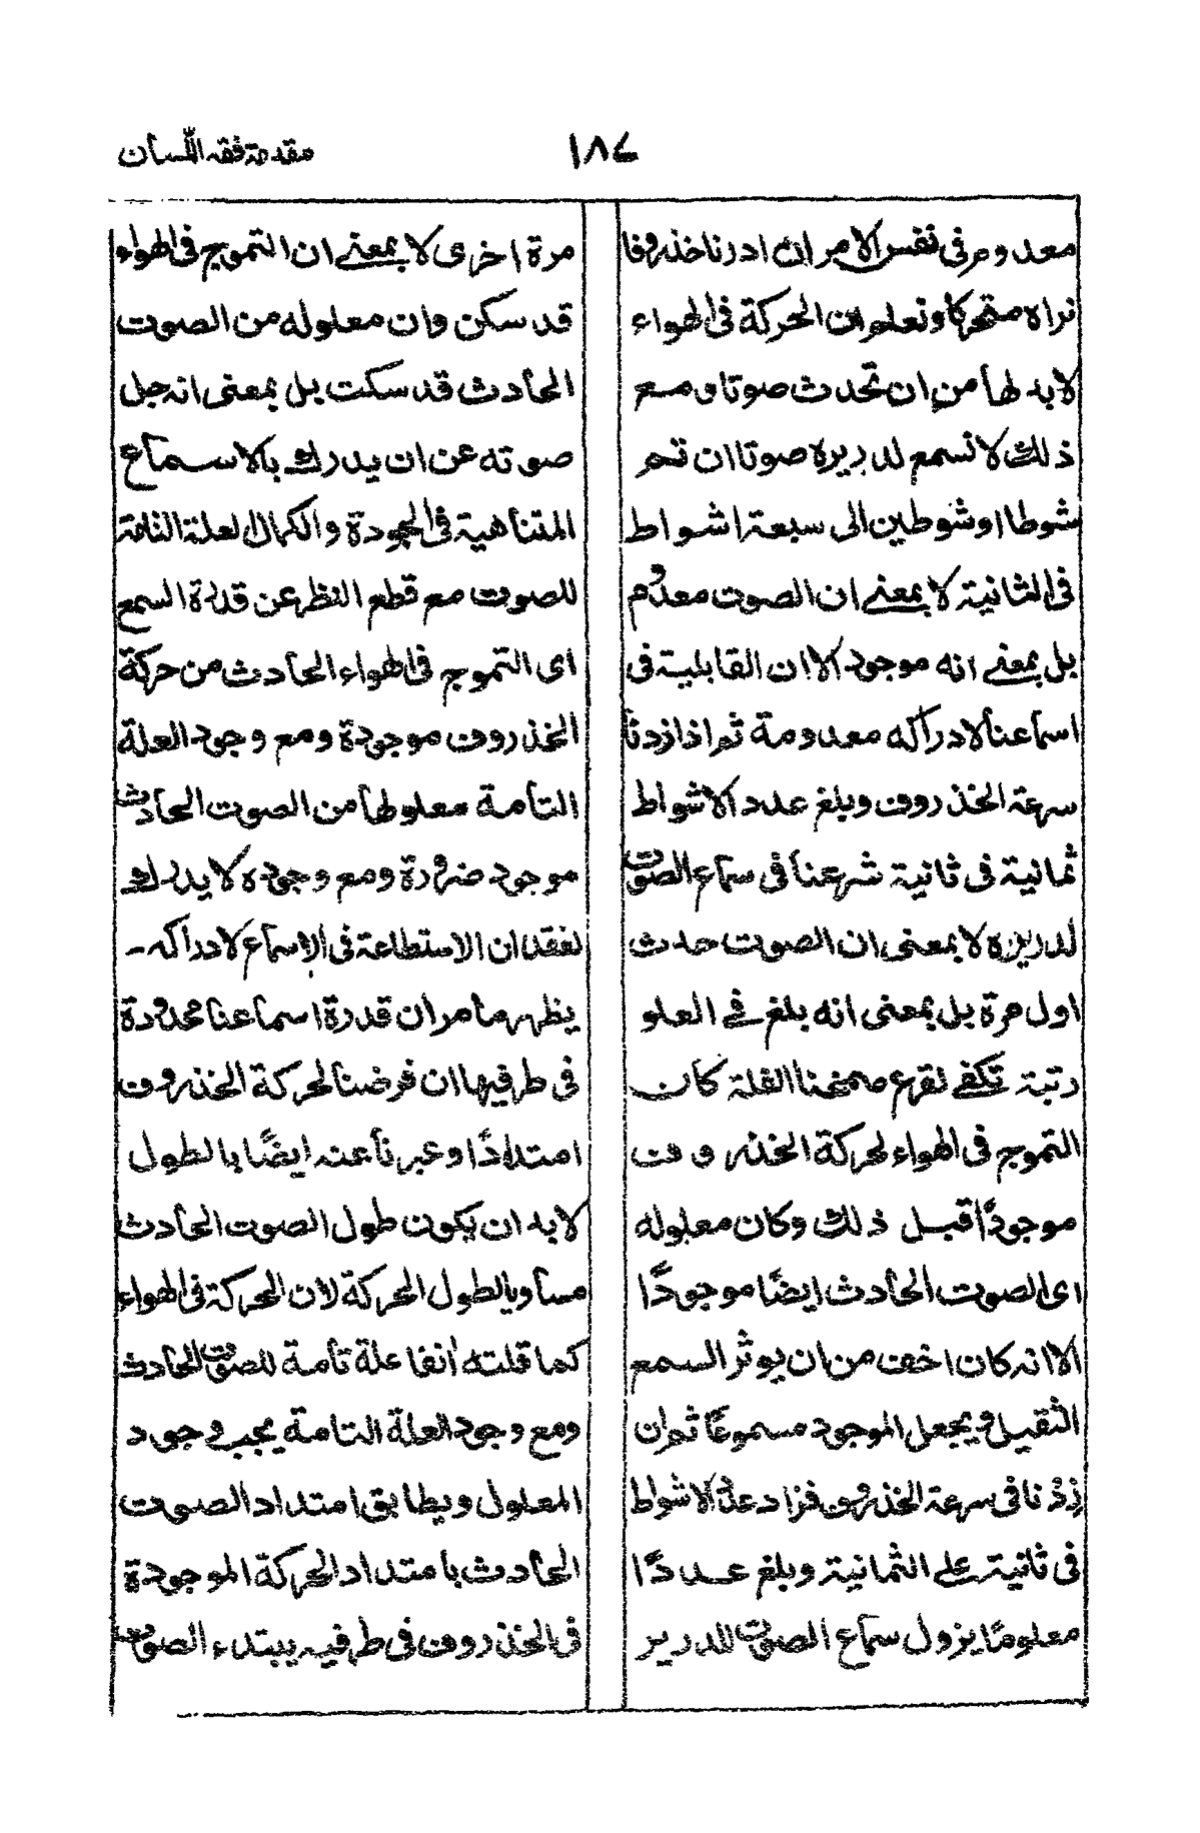 مقدمة فقه اللسان
١٨٤
معدوم فى نفس الامر ان ادرنا خذروفا
نراه متحركا ونعلم ان الحركة فى الهواء
لابد لها من ان تحدث صوتا ومع
ذلك لا نسمع لدريره صوتا ان تحر
شوطا اوشوطين الى سبعة اشواط
فى الثانية لا بمعنى ان الصوت معدوم
بل بمعنى انه موجود الا ان القابلية فى
اسماعنا لادراكه معدومة ثم اذا زدنا
سرعة الخذروف وبلغ عدد الاشواط
ثمانية فى ثانية شرعنا فى سماع الصوت
لدريره لا بمعنى ان الصوت حدث
اول مرة بل بمعنى انه بلغ فى العلو
رتبة تكفى لقرع صمخنا القلة كان
التموج فى الهواء لحركة الخذروف
موجودًا قبل ذلك وكان معلوله
اى الصوت الحادث ايضًا موجودًا
الا انه كان اخف من ان يوثر السمع
الثقيل ويجعل الموجود مسموعًا ثم ان
زدنا فى سرعة الخذروف فزاد عدد الاشواط
فى ثانية على الثمانية وبلغ عددًا
معلومًا يزول سماع الصوت للدرير
مرة اخرى لا بمعنى ان التموج فى الهواء
قد سكن وان معلوله من الصوت
الحادث قد سكت بل بمعنى انه جل
صوته عن ان يدرك بالاسماع
المتناهية فى الجودة والكمال لعلة التامة
للصوت مع قطع النظر عن قدرة السمع
اى التموج فى الهواء الحادث من حركة
الخذروف موجودة ومع وجود العلة
التامة معلولها من الصوت الحادث
موجود ضرورة ومع وجوده لا يدرك
لفقدان الاستطاعة فى الاسماع لادراكه -
يظهر مما مر ان قدرة اسماعنا محدودة
فى طرفيها ان فرضنا لحركة الخذروف
امتدادًا وعبرنا عنه ايضًا بالطول
لابد ان يكون طول الصوت الحادث
مساويا لطول الحركة لان الحركة فى الهواء
كما قلته انفا علة تامة للصوت الحادث
ومع وجود العلة التامة يجب وجود
المعلول ويطابق امتداد الصوت
الحادث بامتداد الحركة الموجودة
فى الخذروف فى طرفيه يبتدء الصوت